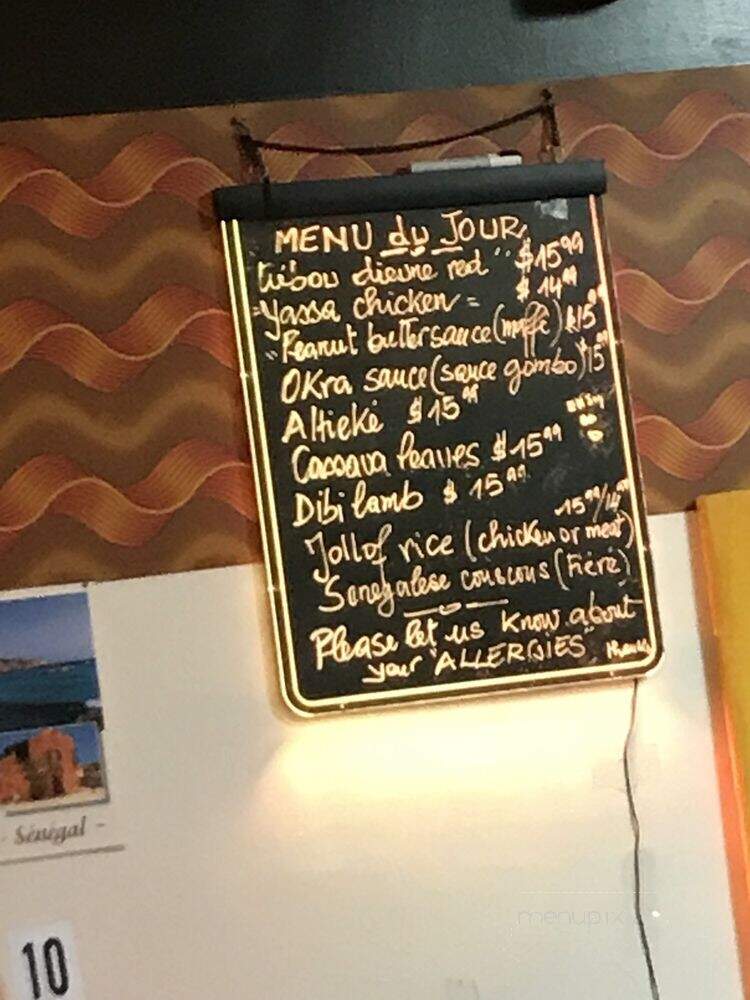 MENU du JOUR
tiébou dieune red" $15⁹⁹
"Yassa chicken" $14⁹⁹
"Peanut butter sauce (maffé) $15⁹⁹
OKra sauce (sauce gombo) $15⁹⁹
Altieké $15⁹⁹
Cassava leaves $15⁹⁹
Dibi lamb $15⁹⁹
15⁹⁹/14⁹⁹
Jollof rice (chicken or meat)
Senegalese couscous (tiéré)
Please let us know about
your "ALLERGIES" thanks
- Sénégal -
10
menupix